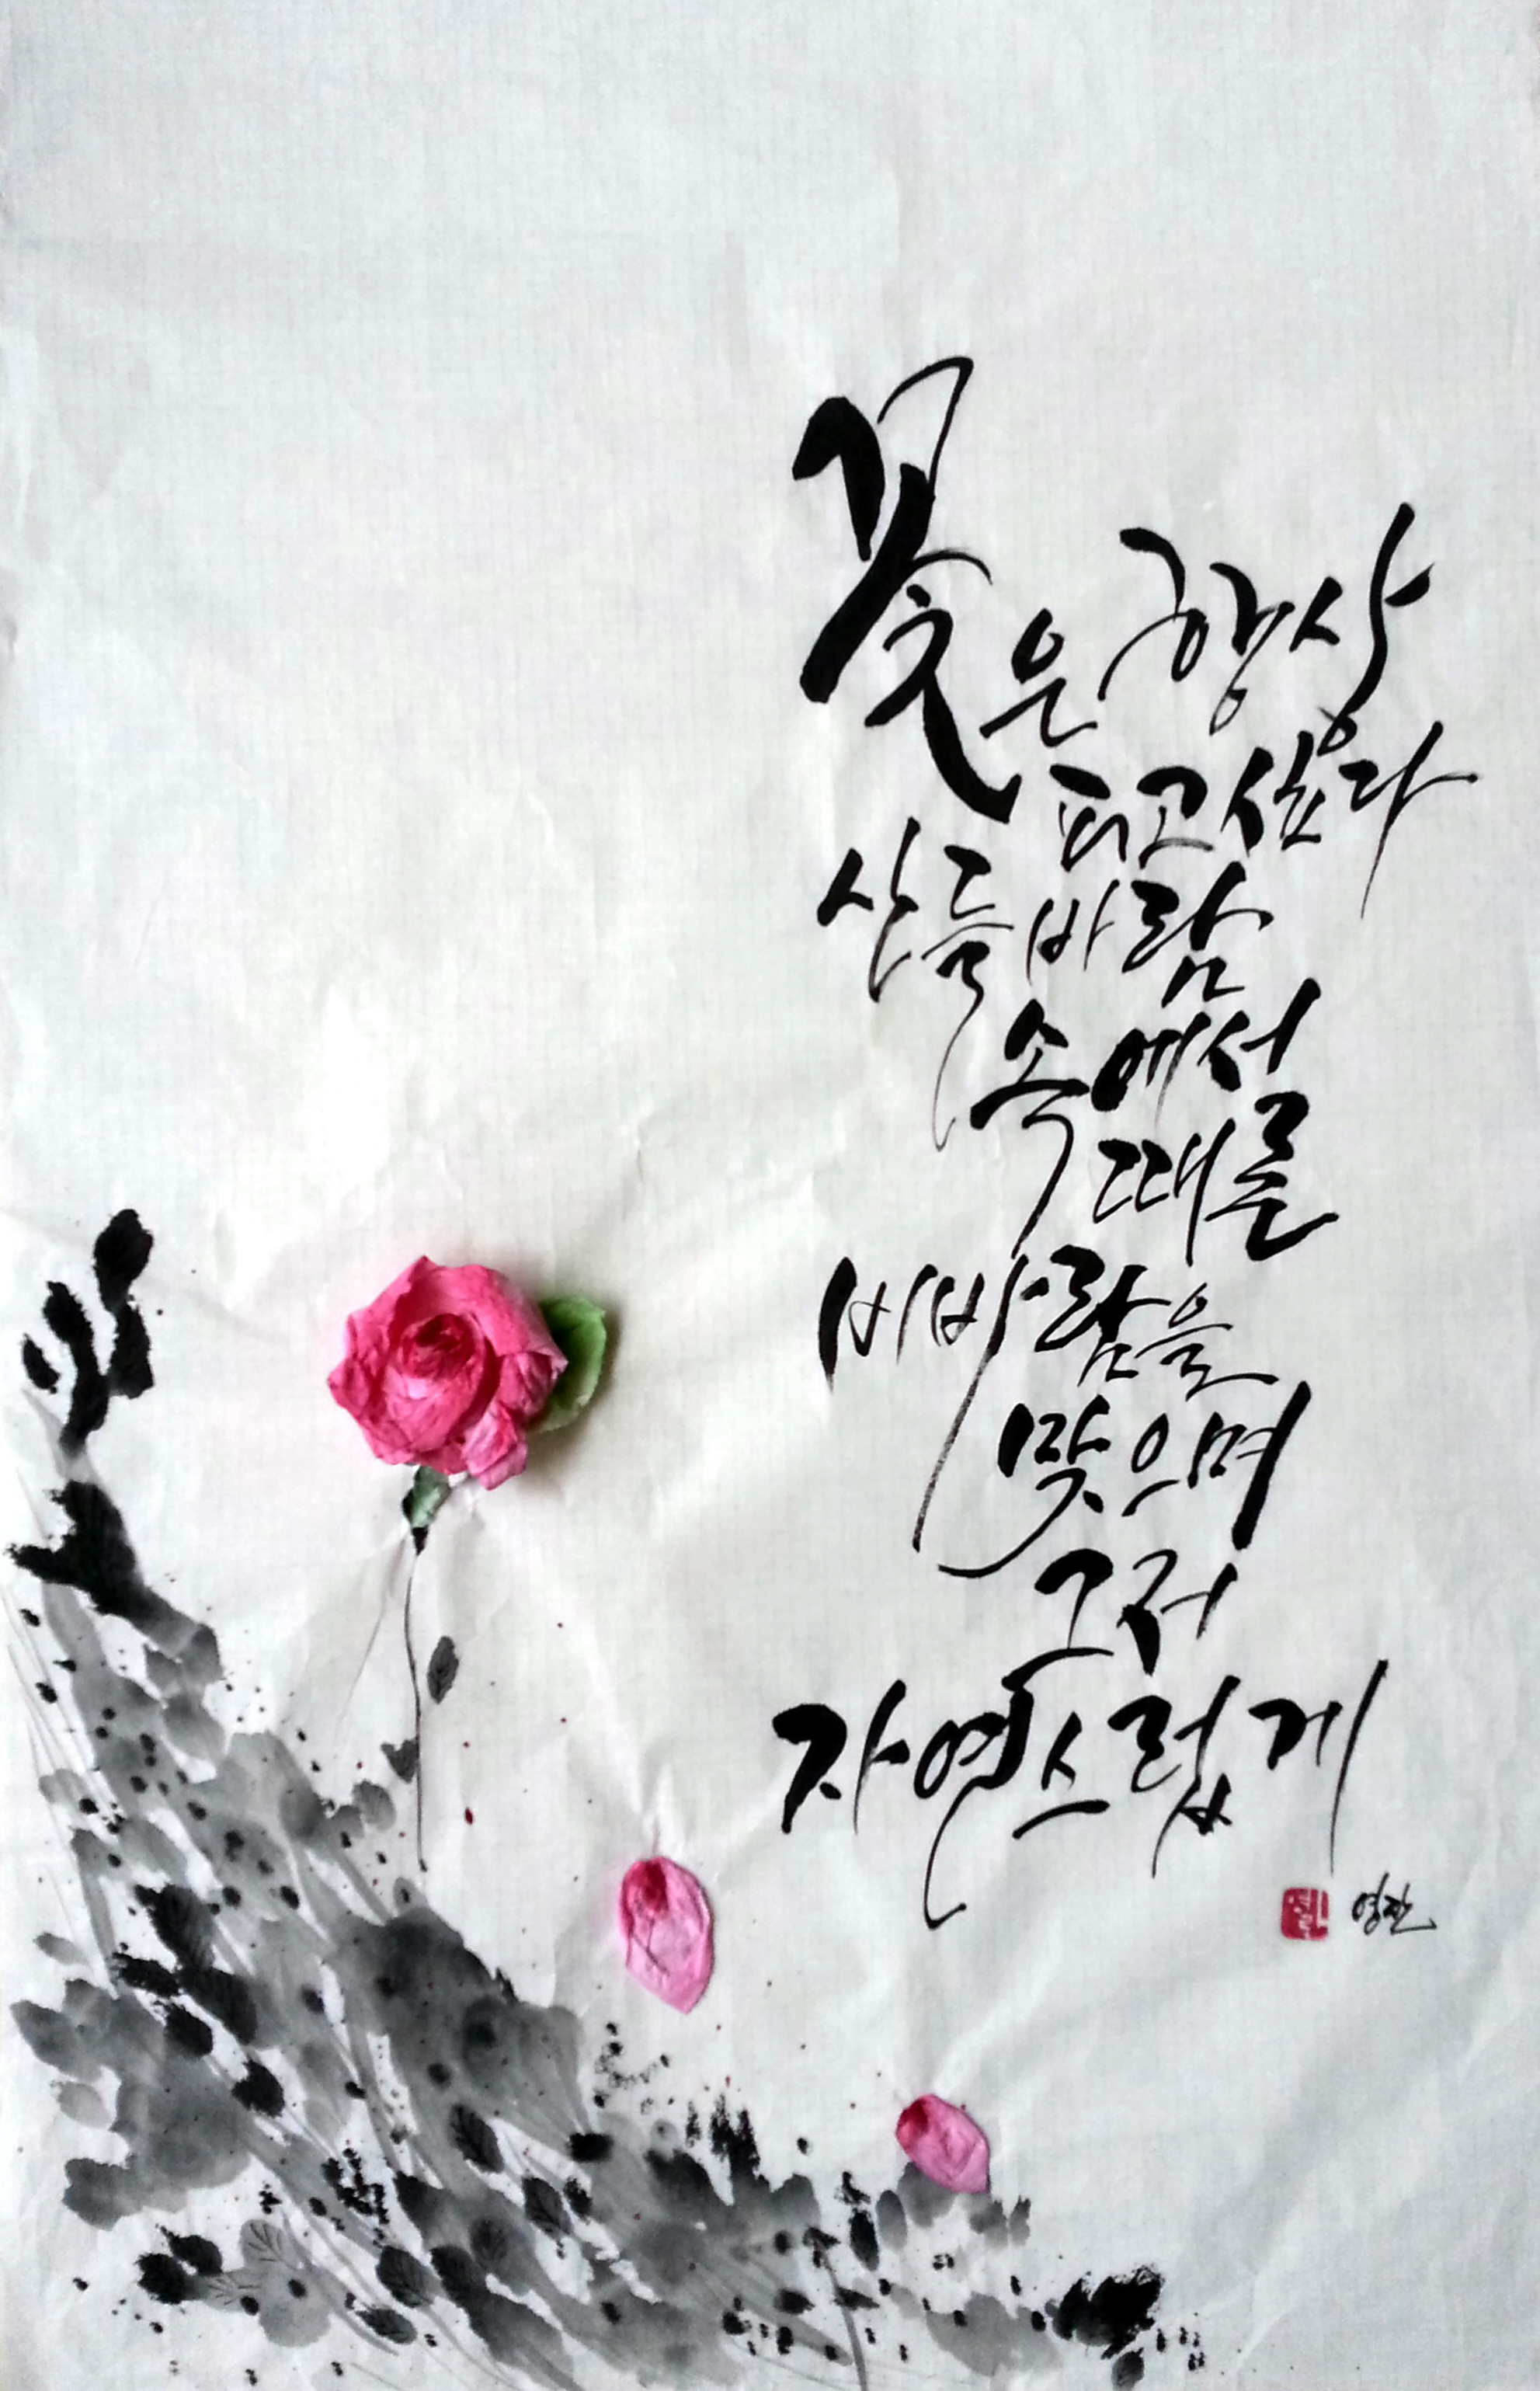 꽃은 항상
피고싶다
산들바람
속에서
때론
비바람을
맞으며
그저
자연스럽게